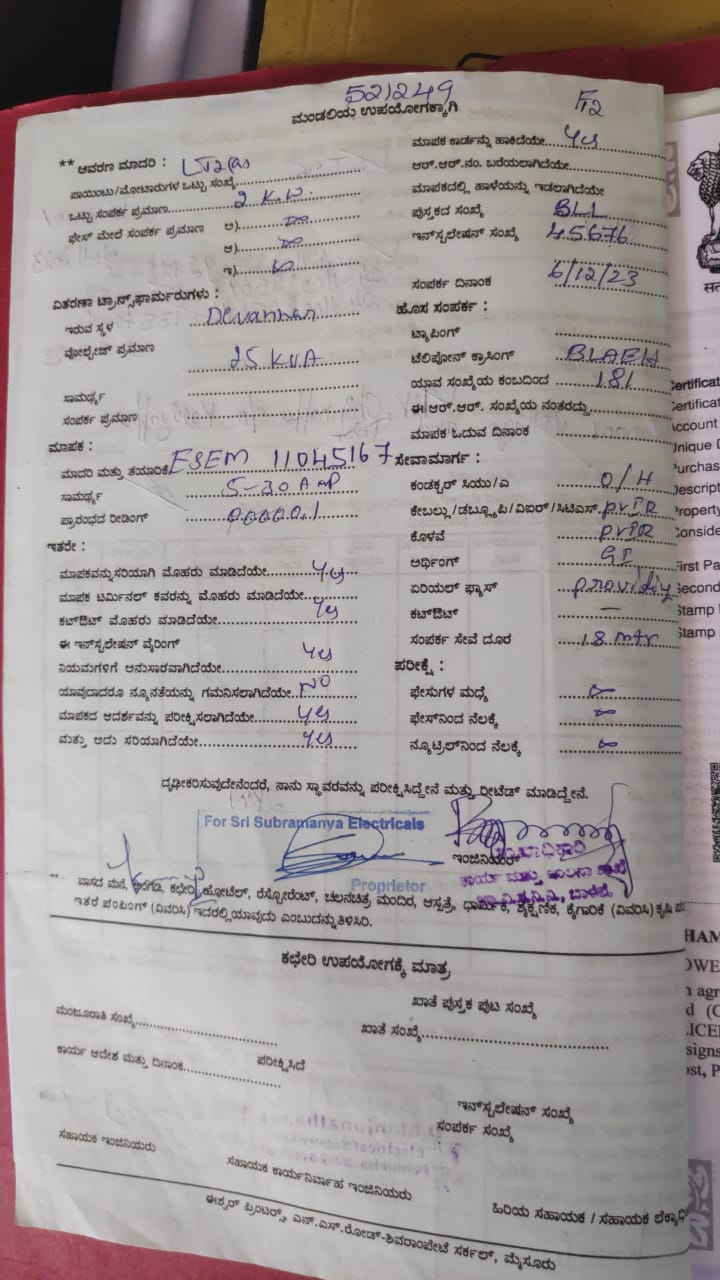 521249
F12
ಮಂಡಲಿಯ ಉಪಯೋಗಕ್ಕಾಗಿ
** ಆವರಣ ಮಾದರಿ : LT2(a)
ಪಾಯಿಂಟು/ಮೋಟಾರುಗಳ ಒಟ್ಟು ಸಂಖ್ಯೆ
ಒಟ್ಟು ಸಂಪರ್ಕ ಪ್ರಮಾಣ 2 K.W.
ಫೇಸ್ ಮೇಲೆ ಸಂಪರ್ಕ ಪ್ರಮಾಣ ಅ) ∞
ಆ) ∞
ಇ) ∞
ವಿತರಣಾ ಟ್ರಾನ್ಸ್‌ಫಾರ್ಮರುಗಳು :
ಇರುವ ಸ್ಥಳ
ವೋಲ್ಟೇಜ್ ಪ್ರಮಾಣ 25 KVA
ಸಾಮರ್ಥ್ಯ
ಸಂಪರ್ಕ ಪ್ರಮಾಣ
ಮಾಪಕ :
ಮಾದರಿ ಮತ್ತು ತಯಾರಿಕೆ ESEM 11045167
ಸಾಮರ್ಥ್ಯ 5-30 Amp
ಪ್ರಾರಂಭದ ರೀಡಿಂಗ್ 00000.1
ಇತರೇ :
ಮಾಪಕವನ್ನು ಸರಿಯಾಗಿ ಮೊಹರು ಮಾಡಿದೆಯೇ Yes
ಮಾಪಕ ಟರ್ಮಿನಲ್ ಕವರನ್ನು ಮೊಹರು ಮಾಡಿದೆಯೇ
ಕಟ್‌ಔಟ್ ಮೊಹರು ಮಾಡಿದೆಯೇ Yes
ಈ ಇನ್‌ಸ್ಟಲೇಷನ್ ವೈರಿಂಗ್
ನಿಯಮಗಳಿಗೆ ಅನುಸಾರವಾಗಿದೆಯೇ Yes
ಯಾವುದಾದರೂ ನ್ಯೂನತೆಯನ್ನು ಗಮನಿಸಲಾಗಿದೆಯೇ NO
ಮಾಪಕದ ಆದರ್ಶವನ್ನು ಪರೀಕ್ಷಿಸಲಾಗಿದೆಯೇ Yes
ಮತ್ತು ಅದು ಸರಿಯಾಗಿದೆಯೇ Yes
ಮಾಪಕ ಕಾರ್ಡನ್ನು ಹಾಕಿದೆಯೇ Yes
ಆರ್.ಆರ್.ನಂ. ಬರೆಯಲಾಗಿದೆಯೇ
ಮಾಪಕದಲ್ಲಿ ಹಾಳೆಯನ್ನು ಇಡಲಾಗಿದೆಯೇ
ಪುಸ್ತಕದ ಸಂಖ್ಯೆ BLL
ಇನ್‌ಸ್ಟಲೇಷನ್ ಸಂಖ್ಯೆ 45676
ಸಂಪರ್ಕ ದಿನಾಂಕ 6/12/23
ಹೊಸ ಸಂಪರ್ಕ :
ಟ್ಯಾಪಿಂಗ್
ಟೆಲಿಫೋನ್ ಕ್ರಾಸಿಂಗ್
ಯಾವ ಸಂಖ್ಯೆಯ ಕಂಬದಿಂದ 181
ಈ ಆರ್.ಆರ್. ಸಂಖ್ಯೆಯ ನಂತರದ್ದು
ಮಾಪಕ ಓದುವ ದಿನಾಂಕ
ಸೇವಾಮಾರ್ಗ :
ಕಂಡಕ್ಟರ್ ಸಿಯು/ಎ O/H
ಕೇಬಲ್ಲು/ಡಬ್ಲ್ಯೂಪಿ/ವಿಐರ್/ಸಿಟಿಎಸ್
ಕೊಳವೆ
ಅರ್ಥಿಂಗ್ GI
ಏರಿಯಲ್ ಫ್ಯೂಸ್
ಕಟ್‌ಔಟ್ —
ಸಂಪರ್ಕ ಸೇವೆ ದೂರ 18 mtr
ಪರೀಕ್ಷೆ :
ಫೇಸುಗಳ ಮಧ್ಯೆ ∞
ಫೇಸ್‌ನಿಂದ ನೆಲಕ್ಕೆ ∞
ನ್ಯೂಟ್ರಲ್‌ನಿಂದ ನೆಲಕ್ಕೆ ∞
ದೃಢೀಕರಿಸುವುದೇನೆಂದರೆ, ನಾನು ಸ್ಥಾವರವನ್ನು ಪರೀಕ್ಷಿಸಿದ್ದೇನೆ ಮತ್ತು ರೀಟೆಡ್ ಮಾಡಿದ್ದೇನೆ.
For Sri Subramanya Electricals
Proprietor
ಇಂಜಿನಿಯರ್
ಶಾಖಾಧಿಕಾರಿ
** ವಾಸದ ಮನೆ, ಅಂಗಡಿ, ಕಛೇರಿ, ಹೋಟೆಲ್, ರೆಸ್ಟೋರೆಂಟ್, ಚಲನಚಿತ್ರ ಮಂದಿರ, ಆಸ್ಪತ್ರೆ, ಧಾರ್ಮಿಕ, ಶೈಕ್ಷಣಿಕ, ಕೈಗಾರಿಕೆ (ವಿವರಿಸಿ) ಕೃಷಿ
ಇತರೆ ಪಂಪಿಂಗ್ (ವಿವರಿಸಿ) ಇದರಲ್ಲಿ ಯಾವುದು ಎಂಬುದನ್ನು ತಿಳಿಸಿರಿ.
ಕಛೇರಿ ಉಪಯೋಗಕ್ಕೆ ಮಾತ್ರ
ಖಾತೆ ಪುಸ್ತಕ ಪುಟ ಸಂಖ್ಯೆ
ಮಂಜೂರಾತಿ ಸಂಖ್ಯೆ
ಖಾತೆ ಸಂಖ್ಯೆ
ಕಾರ್ಯ ಆದೇಶ ಮತ್ತು ದಿನಾಂಕ
ಪರೀಕ್ಷಿಸಿದೆ
ಇನ್‌ಸ್ಟಲೇಷನ್ ಸಂಖ್ಯೆ
ಸಂಪರ್ಕ ಸಂಖ್ಯೆ
ಸಹಾಯಕ ಇಂಜಿನಿಯರು
ಸಹಾಯಕ ಕಾರ್ಯನಿರ್ವಾಹ ಇಂಜಿನಿಯರು
ಹಿರಿಯ ಸಹಾಯಕ / ಸಹಾಯಕ
ಈಶ್ವರ್ ಪ್ರಿಂಟರ್ಸ್, ಎನ್.ಎಸ್.ರೋಡ್-ಶಿವರಾಂಪೇಟೆ ಸರ್ಕಲ್, ಮೈಸೂರು